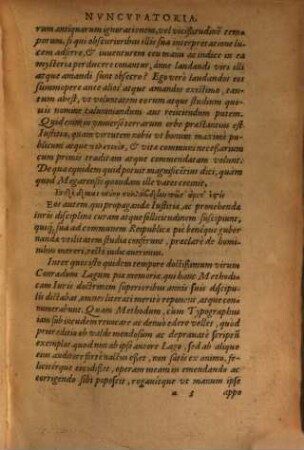 NVNCVPATORIA.
rum antiquarum ignorationem, vel vicissitudinē tem-
porum, si qui obscurioribus illis sua interpretatione lu-
cem adfere, & iuuentutem ceu manu ac indice in ea
mysteria perducere conantur, anne laudandi vero illi
atque amandi sunt obsecro? Ego verò laudandos eos
summopere ante alios atque amandos existimo, tan-
tum abest, vt voluntatem eorum atque studium quouis
nomine calumniandum aut reiiciendum putem.
Quid enim in vniuerso terrarum orbe præstantius est
Iustitia, quam virtutem nobis vt bonum maximè pu-
blicum atque vtile, & vitæ communi necessarium
cum primis traditam atque commendatam volunt.
De qua equidem quid pocus insigniores dici, quàm
quod Megarensis quondam ille vates cecinit,
Ἐν δὲ δικαιοσύνῃ συλλήβδην πᾶσ' ἀρετή
Eos autem, qui propaganda Iustitiæ, ac prouehenda
iuris disciplinæ curam atque sollicitudinem suscipiunt,
quiq́; sua ad communem Republicæ piè benique guber-
nandæ vtilitatem studia conferunt, præclarè de homi-
nibus mereri, rectè iudicauerimus.
Inter quos isto quidem tempore doctissimum virum
Conradum Lagum piæ memoriæ, qui hanc Methodi-
cam Iuris doctrinam superioribus annis suis discipu-
lis dictabat, omnes literati meritò reponunt, atque con-
numerabunt. Quam Methodum, cum Typographus
sub incudem reuocare ac denuo edere vellet, quòd
prior editio ab valde mendosum ac deprauatè scripti
exemplar quod non ab ipso autore Lago, sed ab aliquo
eius auditore fortè nactus esset, non satis ex animo, fe-
liciterque excidisset, operam meam in emendando ac
corrigendo sibi poposcit, rogauitque vt manum ipse
a 3 appo